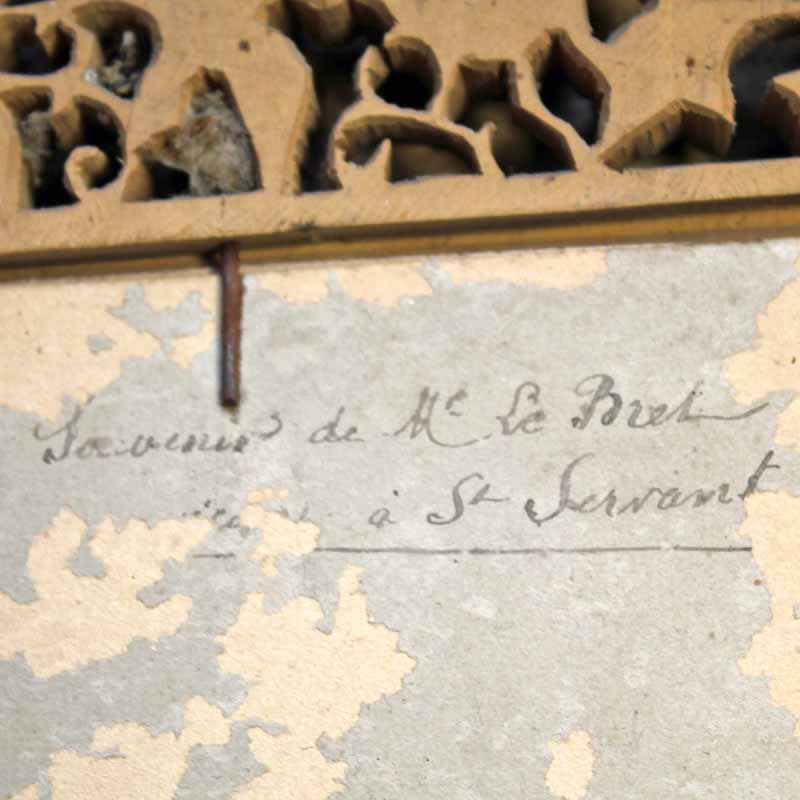 Souvenir de Me Le Bret
à St Servant